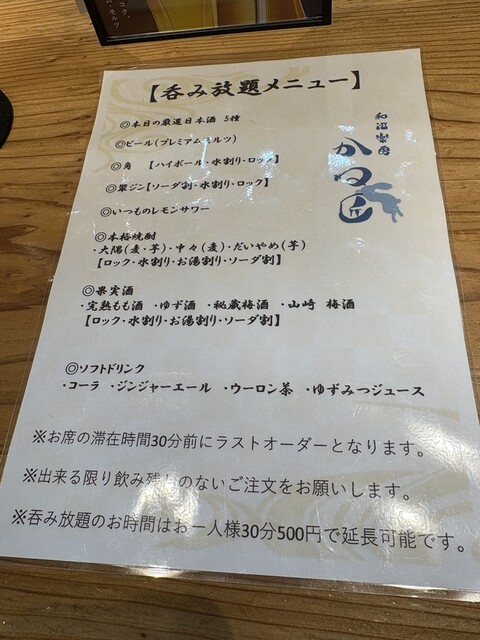 コク。
・モルツ
【呑み放題メニュー】
和酒楽園
かつ匠
◎本日の厳選日本酒 5種
◎ビール(プレミアムモルツ)
◎角 【ハイボール・水割り・ロック】
◎翠ジン【ソーダ割・水割り・ロック】
◎いつものレモンサワー
◎本格焼酎
・大隅(麦・芋)・中々(麦)・だいやめ(芋)
【ロック・水割り・お湯割り・ソーダ割】
◎果実酒
・完熟もも酒 ・ゆず酒 ・秘蔵梅酒 ・山崎 梅酒
【ロック・水割り・お湯割り・ソーダ割】
◎ソフトドリンク
・コーラ ・ジンジャーエール ・ウーロン茶 ・ゆずみつジュース
※お席の滞在時間30分前にラストオーダーとなります。
※出来る限り飲み残しのないご注文をお願いします。
※呑み放題のお時間はお一人様30分500円で延長可能です。